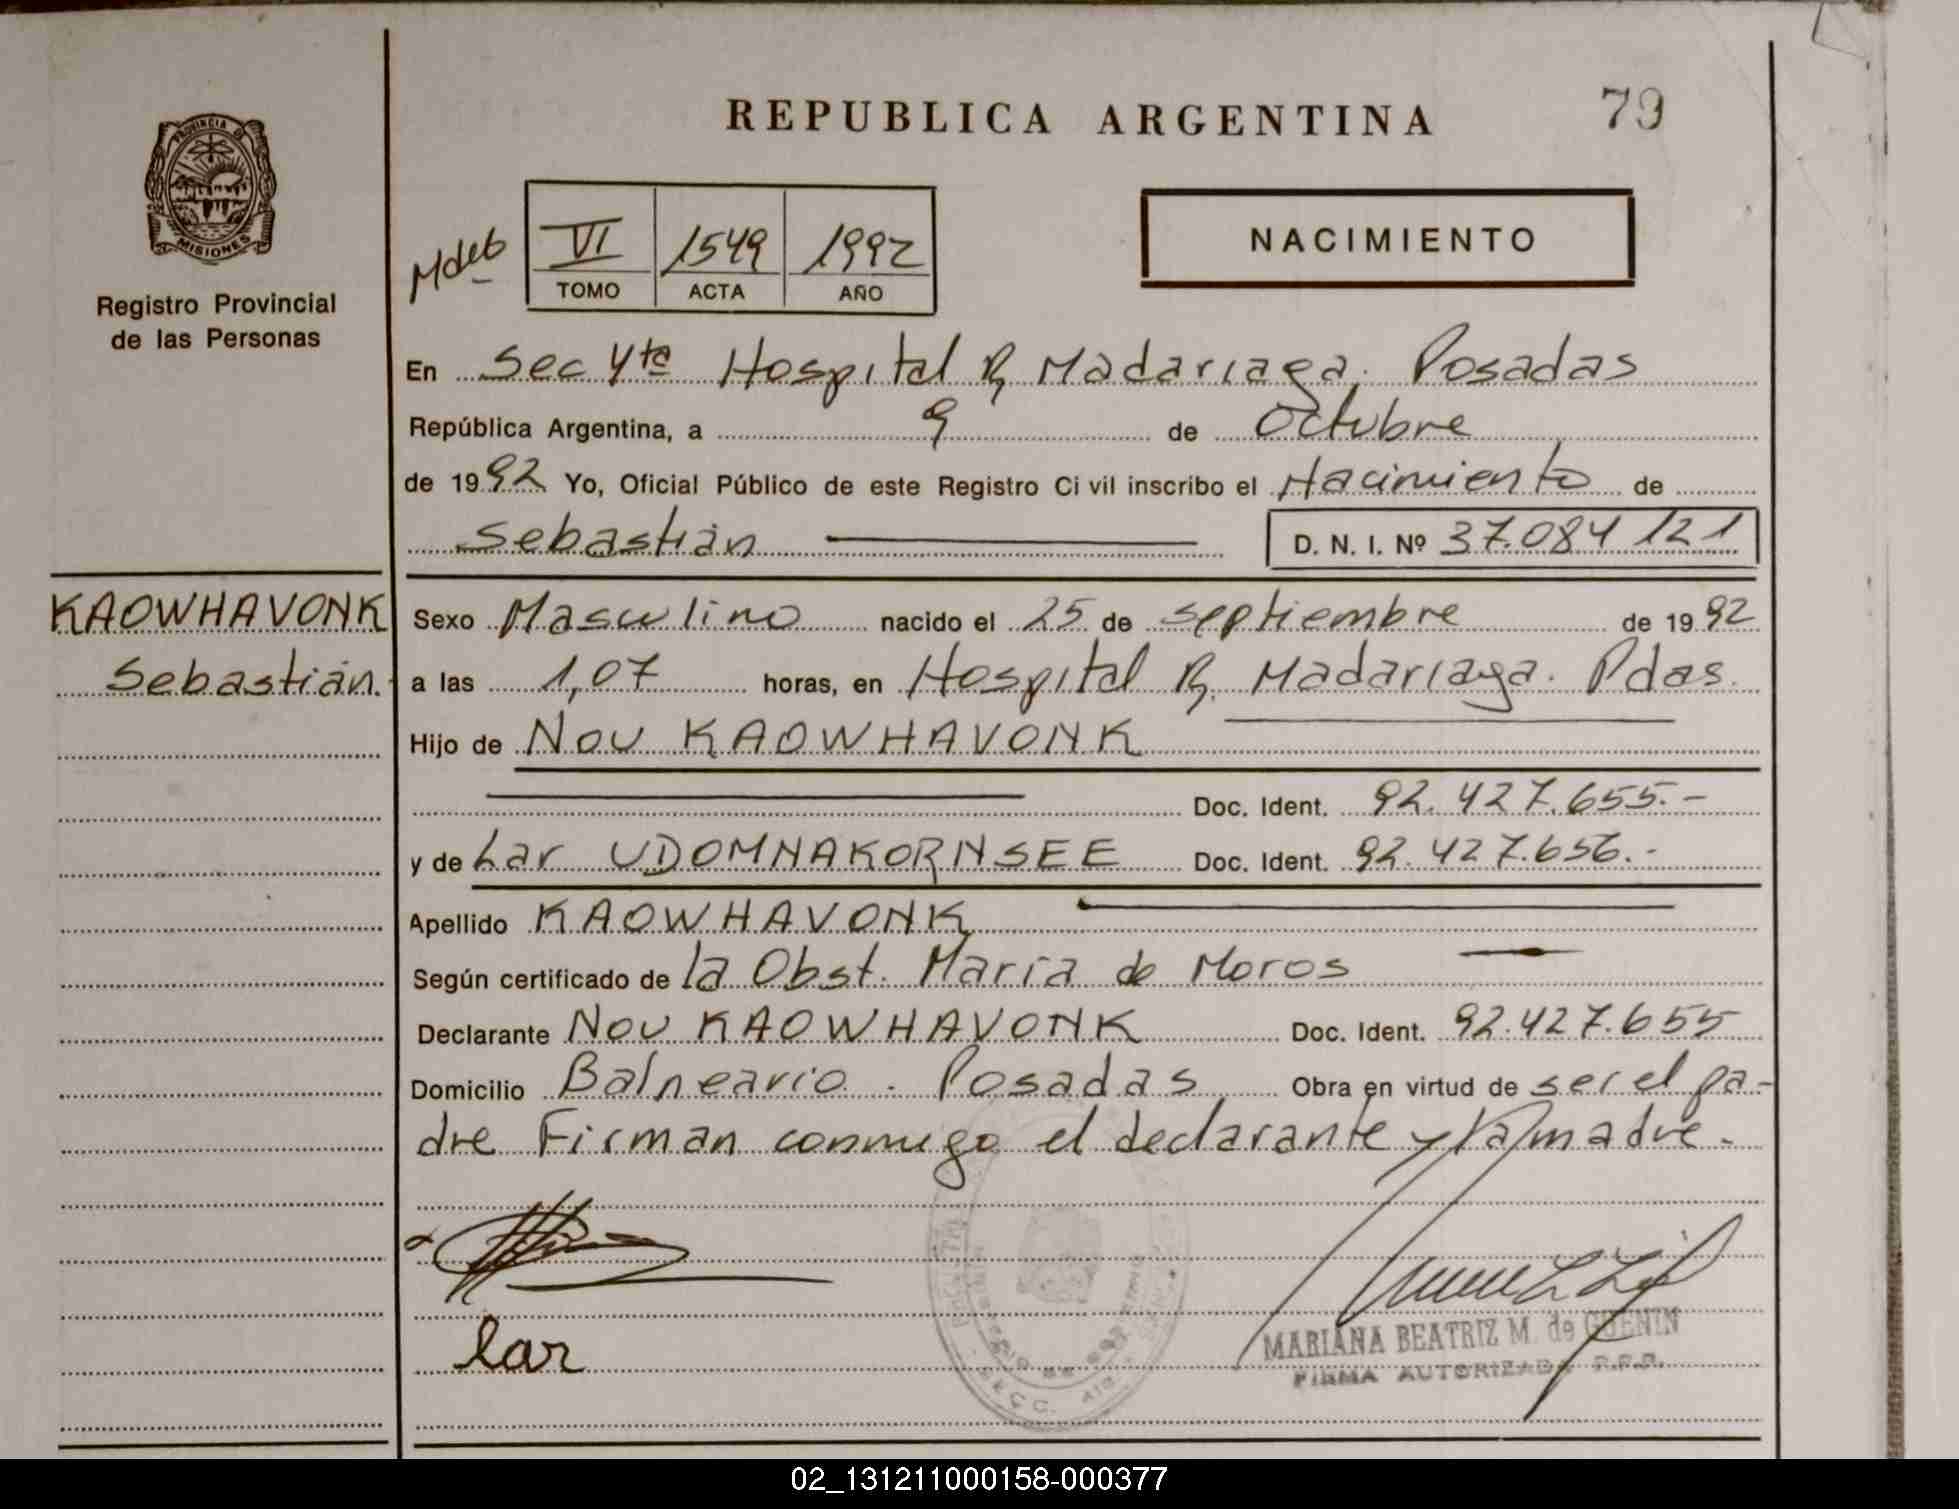 REPUBLICA ARGENTINA
79
PROVINCIA DE
MISIONES
Registro Provincial
de las Personas
VI 1549 1992
TOMO ACTA AÑO
NACIMIENTO
En Sec 4ta Hospital R. Madariaga. Posadas
República Argentina, a 9 de Octubre
de 1992 Yo, Oficial Público de este Registro Civil inscribo el Nacimiento de
Sebastián D. N. I. Nº 37.084 121
KAOWHAVONK
Sebastián.
Sexo Masculino nacido el 25 de septiembre de 1992
a las 1,07 horas, en Hospital R. Madariaga. Pdas.
Hijo de Nou KAOWHAVONK
Doc. Ident. 92.427.655.-
y de Lar UDOMNAKORNSEE Doc. Ident. 92.427.656.-
Apellido KAOWHAVONK
Según certificado de la Obst. María de Moros
Declarante Nou KAOWHAVONK Doc. Ident. 92.427.655
Domicilio Balneario. Posadas Obra en virtud de ser el pa-
dre Firman conmigo el declarante y la madre.
lar
MARIANA BEATRIZ M. de GUENIN
FIRMA AUTORIZADA R.P.P.
02_131211000158-000377